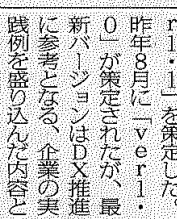 r1・1」を策定した。
昨年8月に「ver1・
0」が策定されたが、最
新バージョンはDX推進
に参考となる、企業の実
践例を盛り込んだ内容と